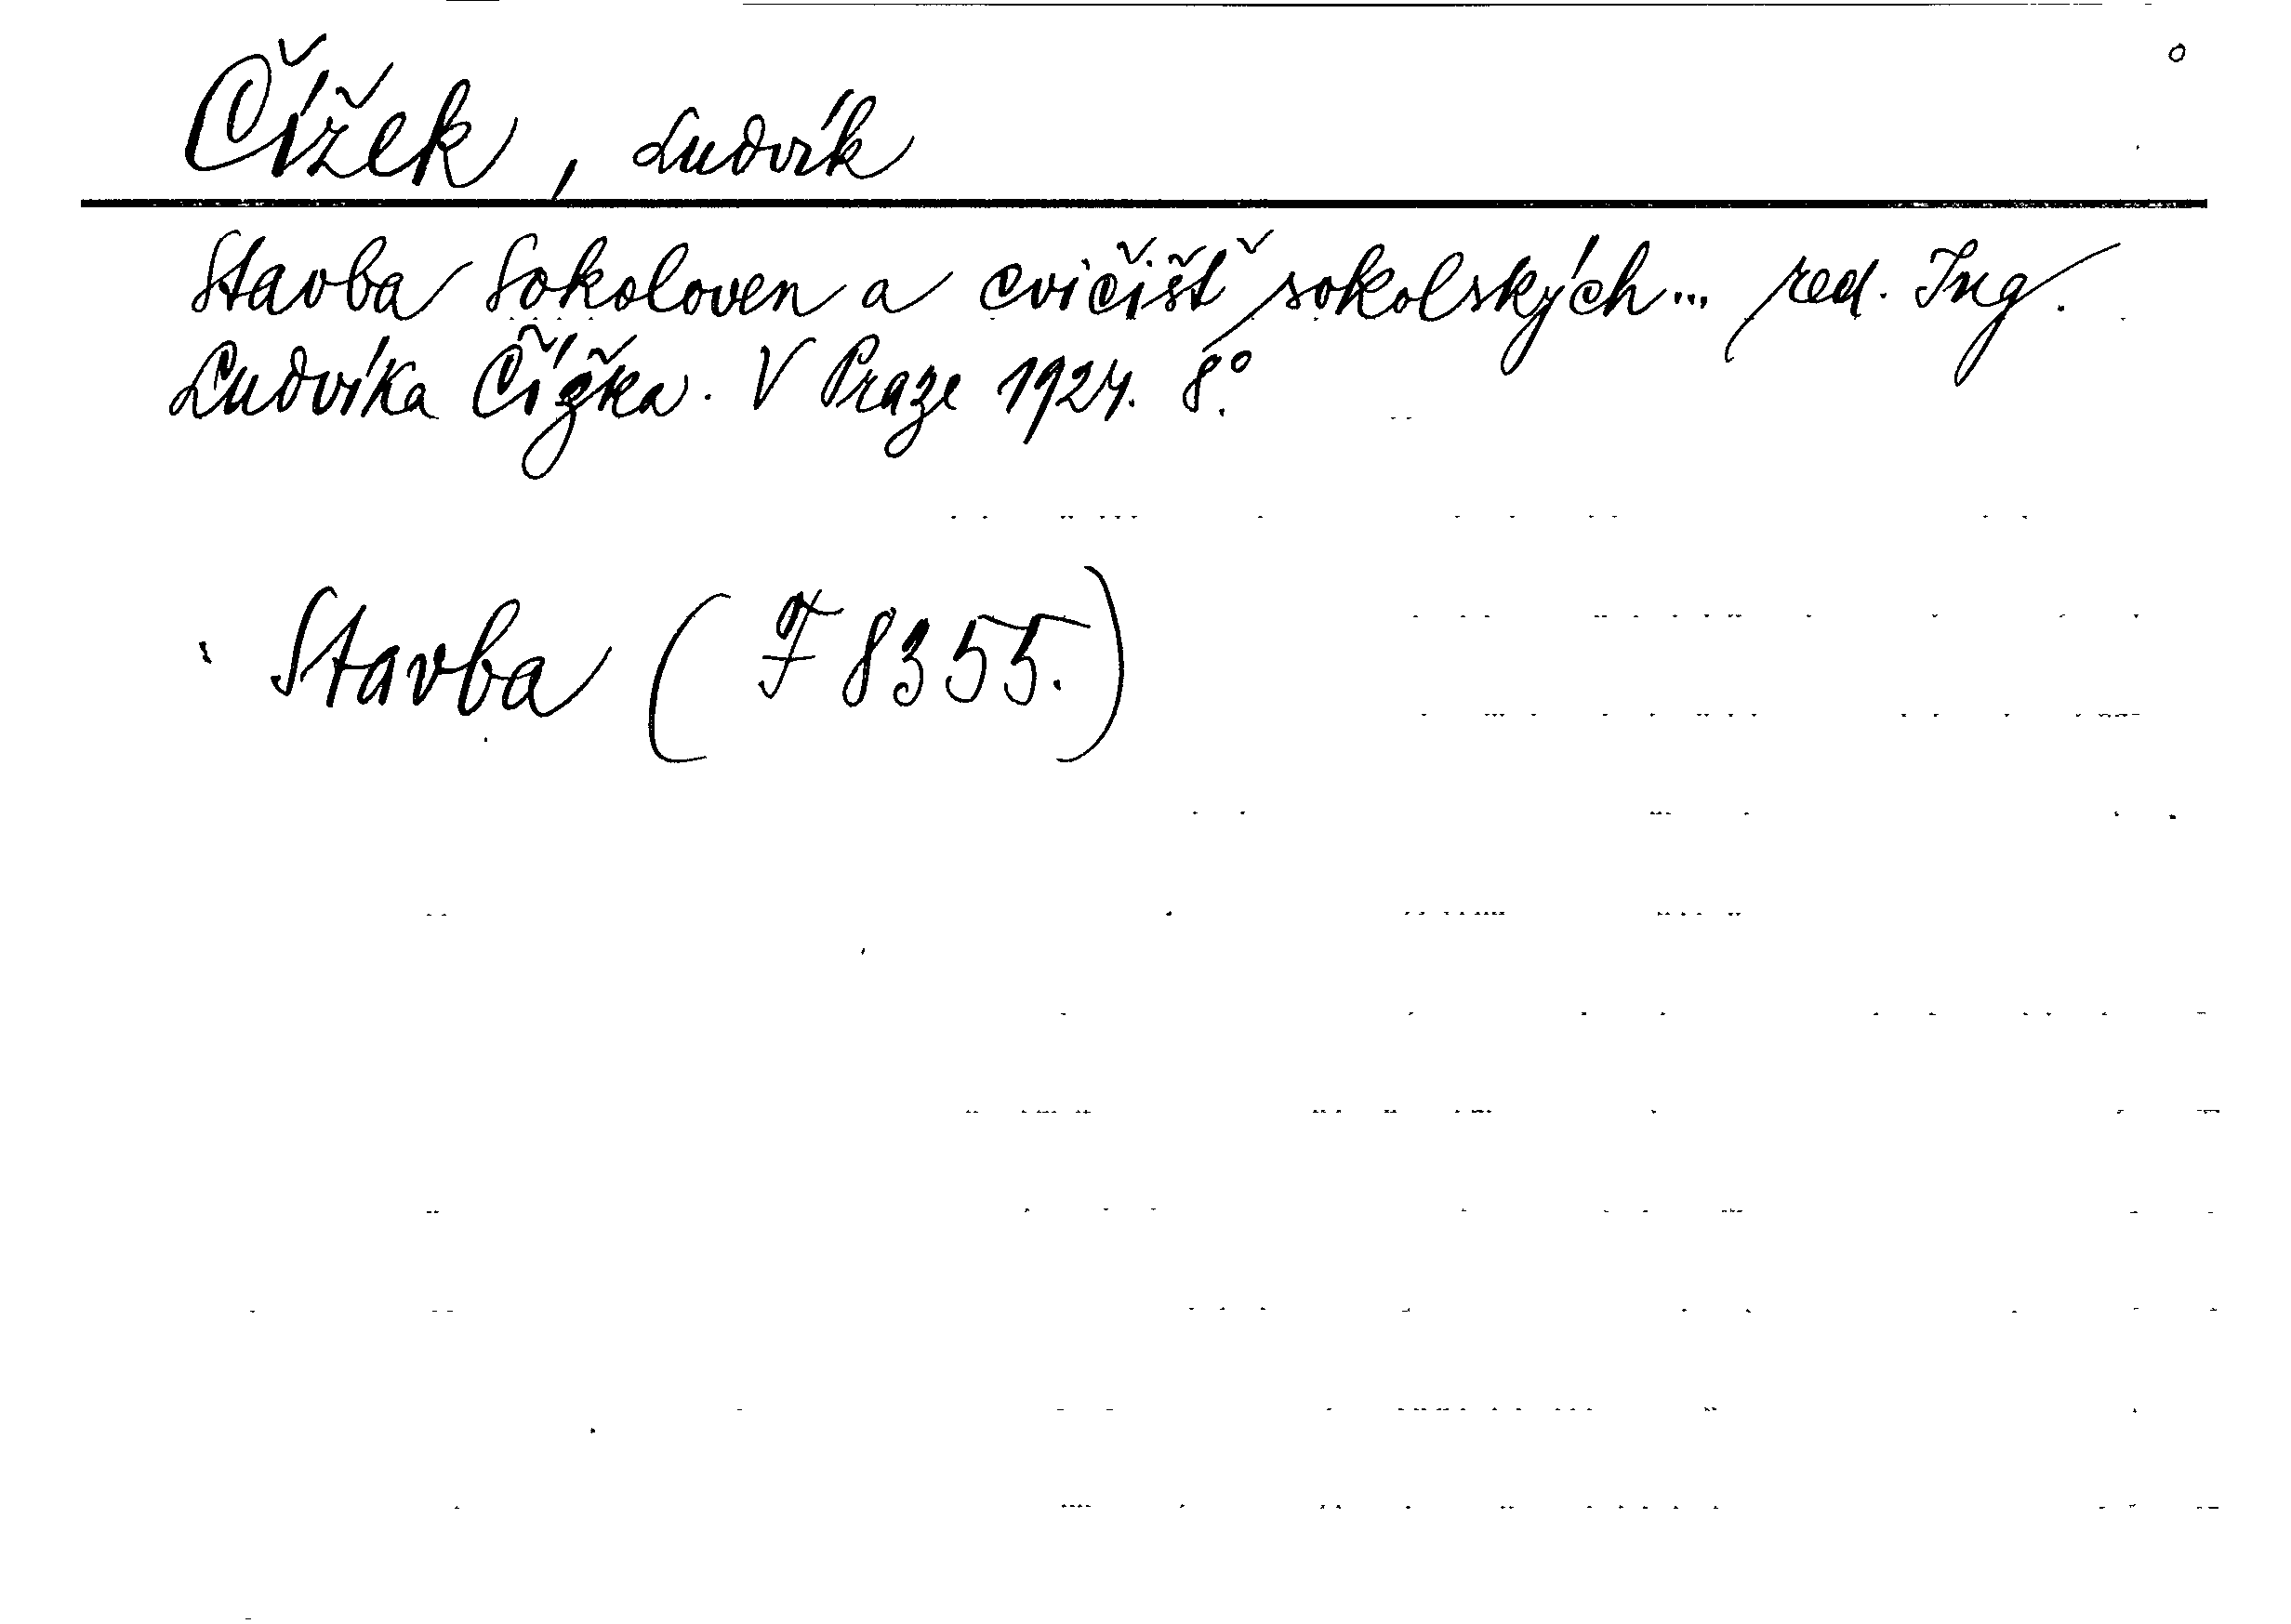 Čížek, Ludvík
Stavba Sokoloven a cvičišť sokolských... red. Ing.
Ludvíka Čížka. V Praze 1924. 8°.
Stavba (F 8355.)